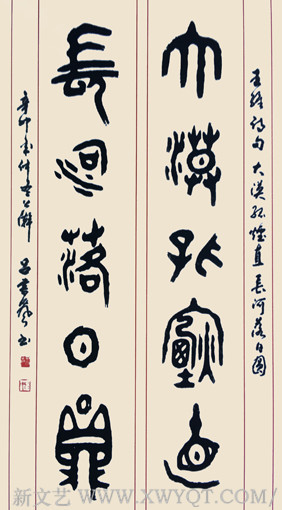 王維詩句 大漠孤煙直 長河落日圓
大漠孤煙直
長河落日圓
辛卯 呂雲 書
新文艺 WWW.XWYQT.COM/